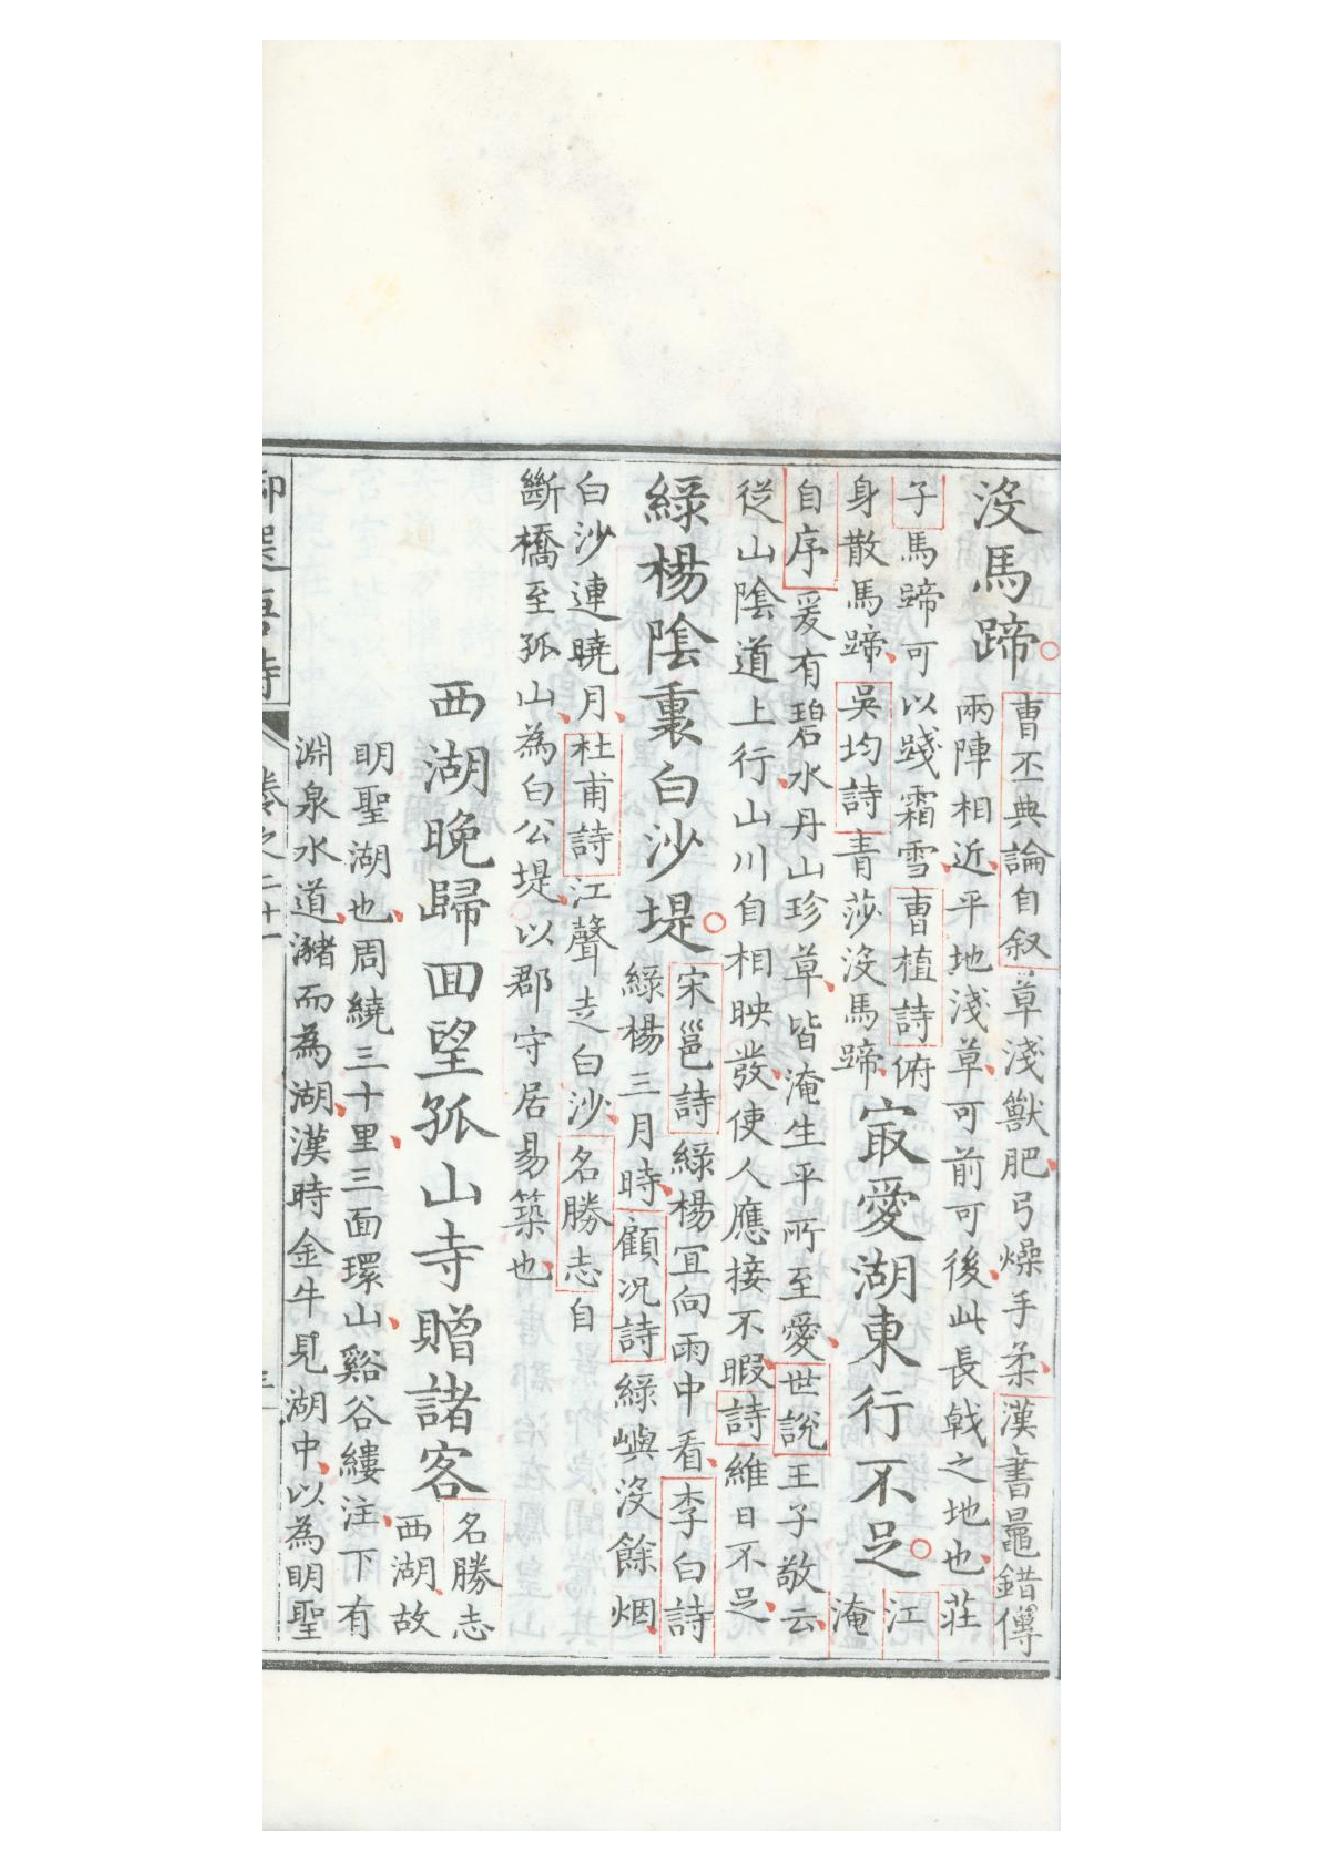 沒馬蹄
曹丕典論自叙草淺獸肥弓燥手柔漢書鼂錯傳
兩陣相近平地淺草可前可後此長戟之地也莊
子馬蹄可以踐霜雪曹植詩俯
身散馬蹄吳均詩青莎沒馬蹄
㝡愛湖東行不足
江
淹
自序爰有碧水丹山珍草皆淹生平所至愛世說王子敬云
從山陰道上行山川自相映發使人應接不暇詩維日不足
綠楊陰裏白沙堤
宋邕詩綠楊宜向雨中看李白詩
綠楊三月時顧況詩綠嶼沒餘烟
白沙連曉月杜甫詩江聲走白沙名勝志自
斷橋至孤山為白公堤以郡守居易築也
西湖晚歸回望孤山寺贈諸客
名勝志
西湖故
明聖湖也周繞三十里三面環山谿谷縷注下有
淵泉水道瀦而為湖漢時金牛見湖中以為明聖
卷之二十一